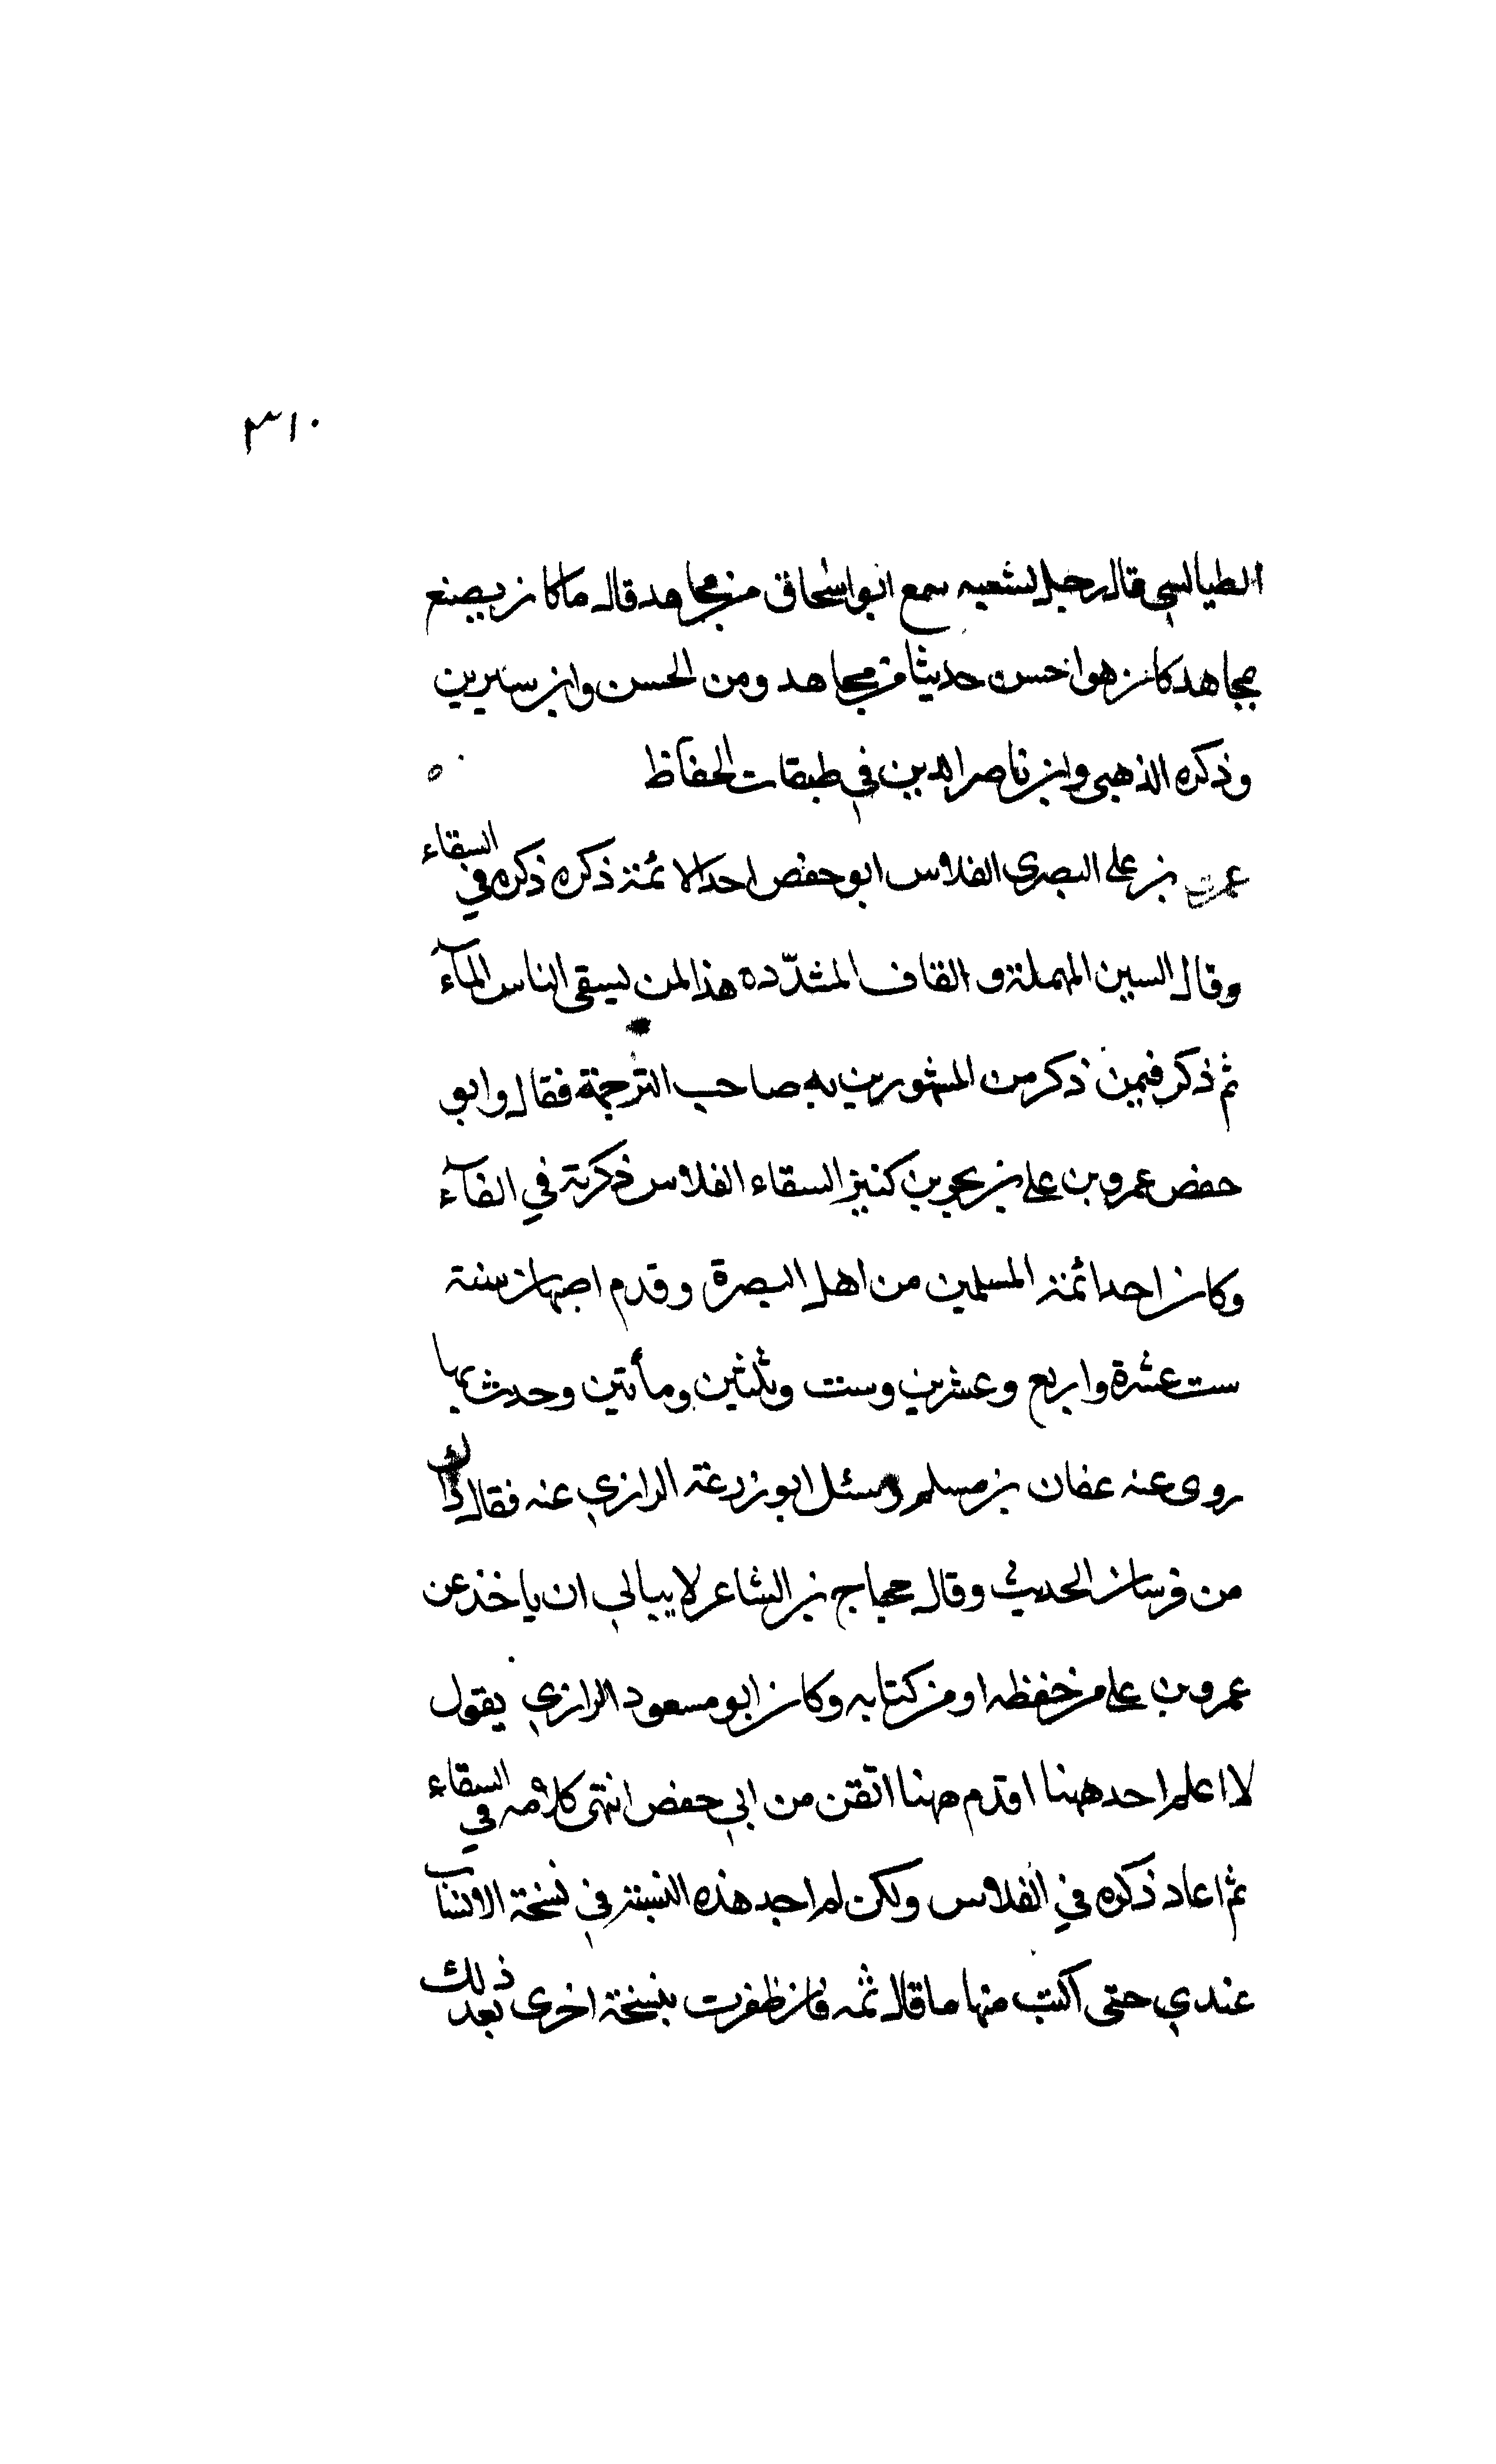 ٣١٠
الطيالسي قال رجل لشعبه سمع ابو اسحاق من مجاهد قال ما كان يصنع
بمجاهد كان هو احسن حديثا من مجاهد ومن الحسن وابن سيرين
وذكره الذهبي وابن ناصر الدين في طبقات الحفاظ ٥
عمرو بن علي البصري الفلاس ابو حفص احد الائمة ذكره ذكره في السقاء
وقال السين المهملة و القاف المشدّده هذا لمن يسقي الناس المآء
ثم ذكر فيمن ذكر من المشهورين به صاحب الترجمة فقال وابو
حفص عمرو بن علي بن بحر بن كنيز السقاء الفلاس ذكرته في الفآء
وكان احد ائمة المسلمين من اهل البصرة وقدم اصبهان سنة
ست عشرة واربع وعشرين وست وثلثين ومأتين وحدث بها
روى عنه عفان بن مسلم وسئل ابو زرعة الرازي عنه فقال ذاك
من فرسان الحديث وقال حجاج بن الشاعر لا يبالي ان ياخذ عن
عمرو بن علي من حفظه او من كتابه وكان ابو مسعود الرازي يقول
لا اعلم احد ههنا اقدم ههنا اتقن من ابي حفص انتهى كلامه في السقاء
ثم اعاد ذكره في الفلاس ولكن لم اجد هذه النسبة في نسخة الانساب
عندي حتى اكتب منها ما قال ثمه فان ظفرت بنسخة اخرى بعد ذلك